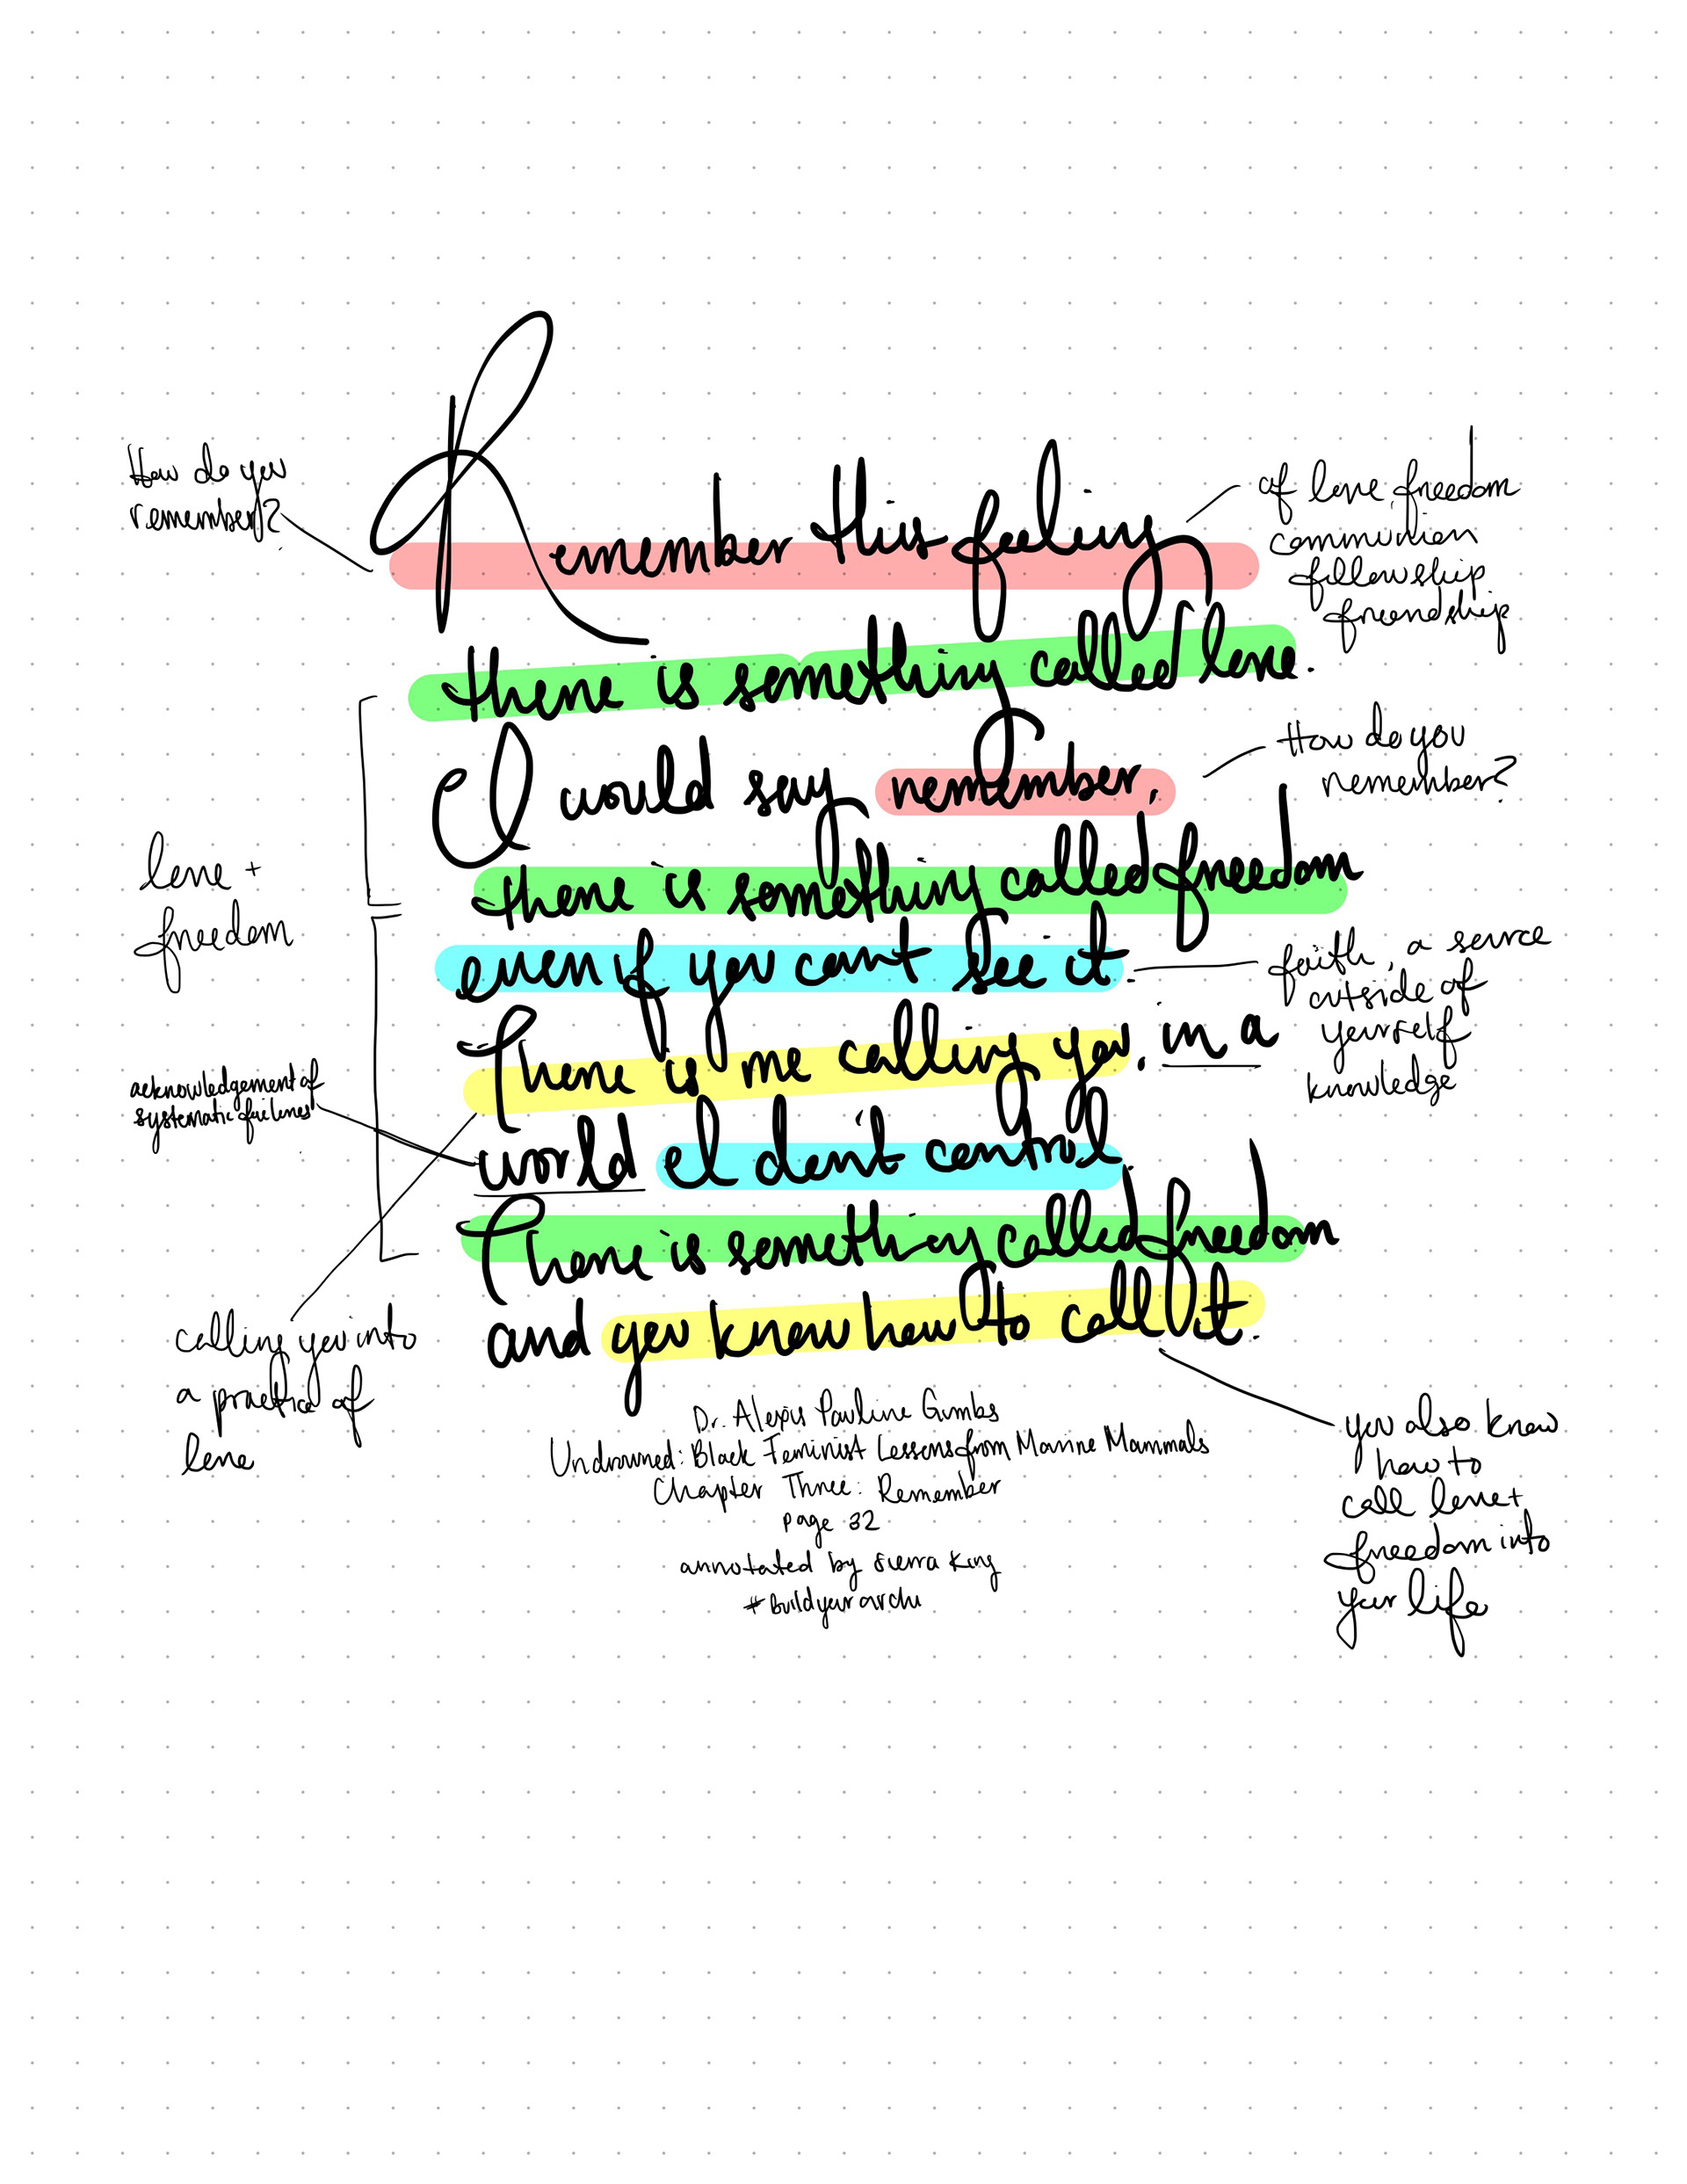 How do you
remember?
Remember this feeling
of love freedom
communion
fellowship
friendship
there is something called love.
I would say remember,
How do you
remember?
there is something called freedom
love +
freedom
even if you can't see it.
faith, a source
outside of
yourself
knowledge
There is me calling you, in a
acknowledgement of
systematic failures
world I don't control.
There is something called freedom
and you know how to call it.
calling you into
a practice of
love
you also know
how to
call love +
freedom into
your life
Dr. Alexis Pauline Gumbs
Undrowned: Black Feminist Lessons from Marine Mammals
Chapter Three: Remember
page 32
annotated by sierra king
#buildyourarchi